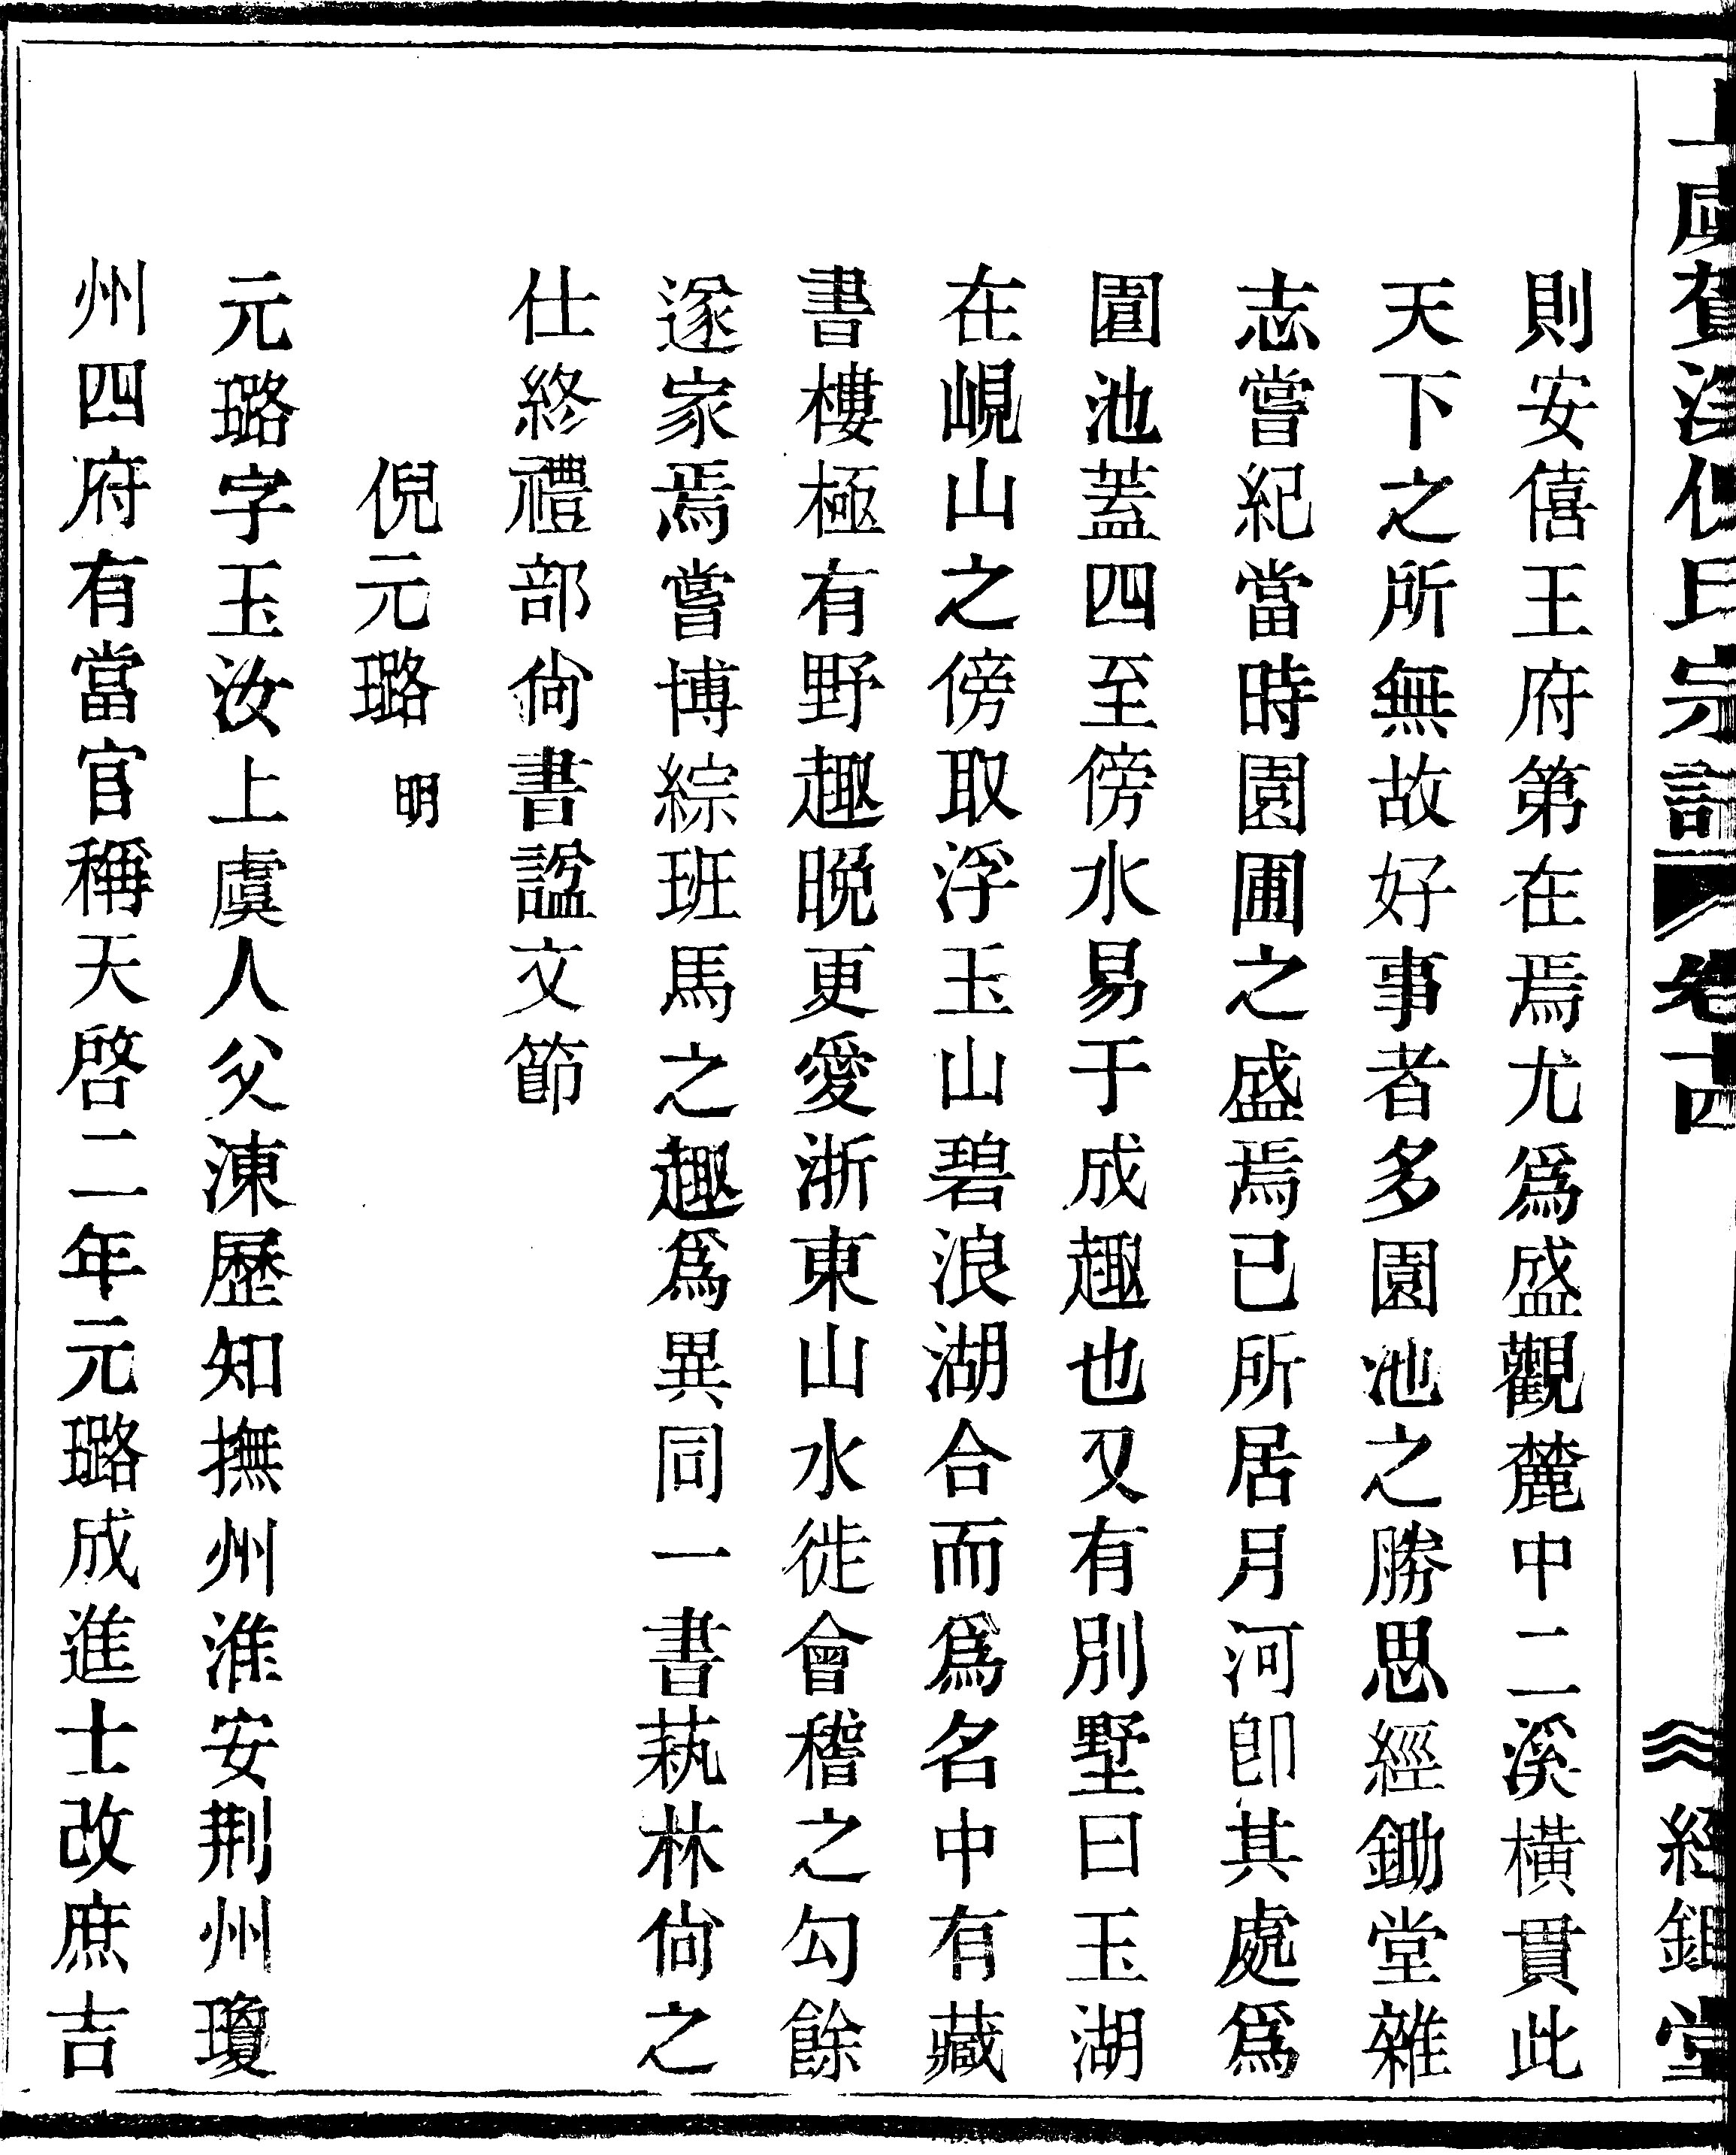 上虞賀溪倪氏宗譜 卷十四 經鉏堂
則安僖王府第在焉尤爲盛觀麓中二溪橫貫此
天下之所無故好事者多園池之勝思經鋤堂雜
志嘗紀當時園圃之盛焉已所居月河卽其處爲
園池蓋四至傍水易于成趣也又有別墅曰玉湖
在峴山之傍取浮玉山碧浪湖合而爲名中有藏
書樓極有野趣晚更愛浙東山水徙會稽之勾餘
遂家焉嘗博綜班馬之趣爲異同一書蓺林尙之
仕終禮部尙書諡文節
倪元璐 明
元璐字玉汝上虞人父涷歷知撫州淮安荆州瓊
州四府有當官稱天啓二年元璐成進士改庶吉